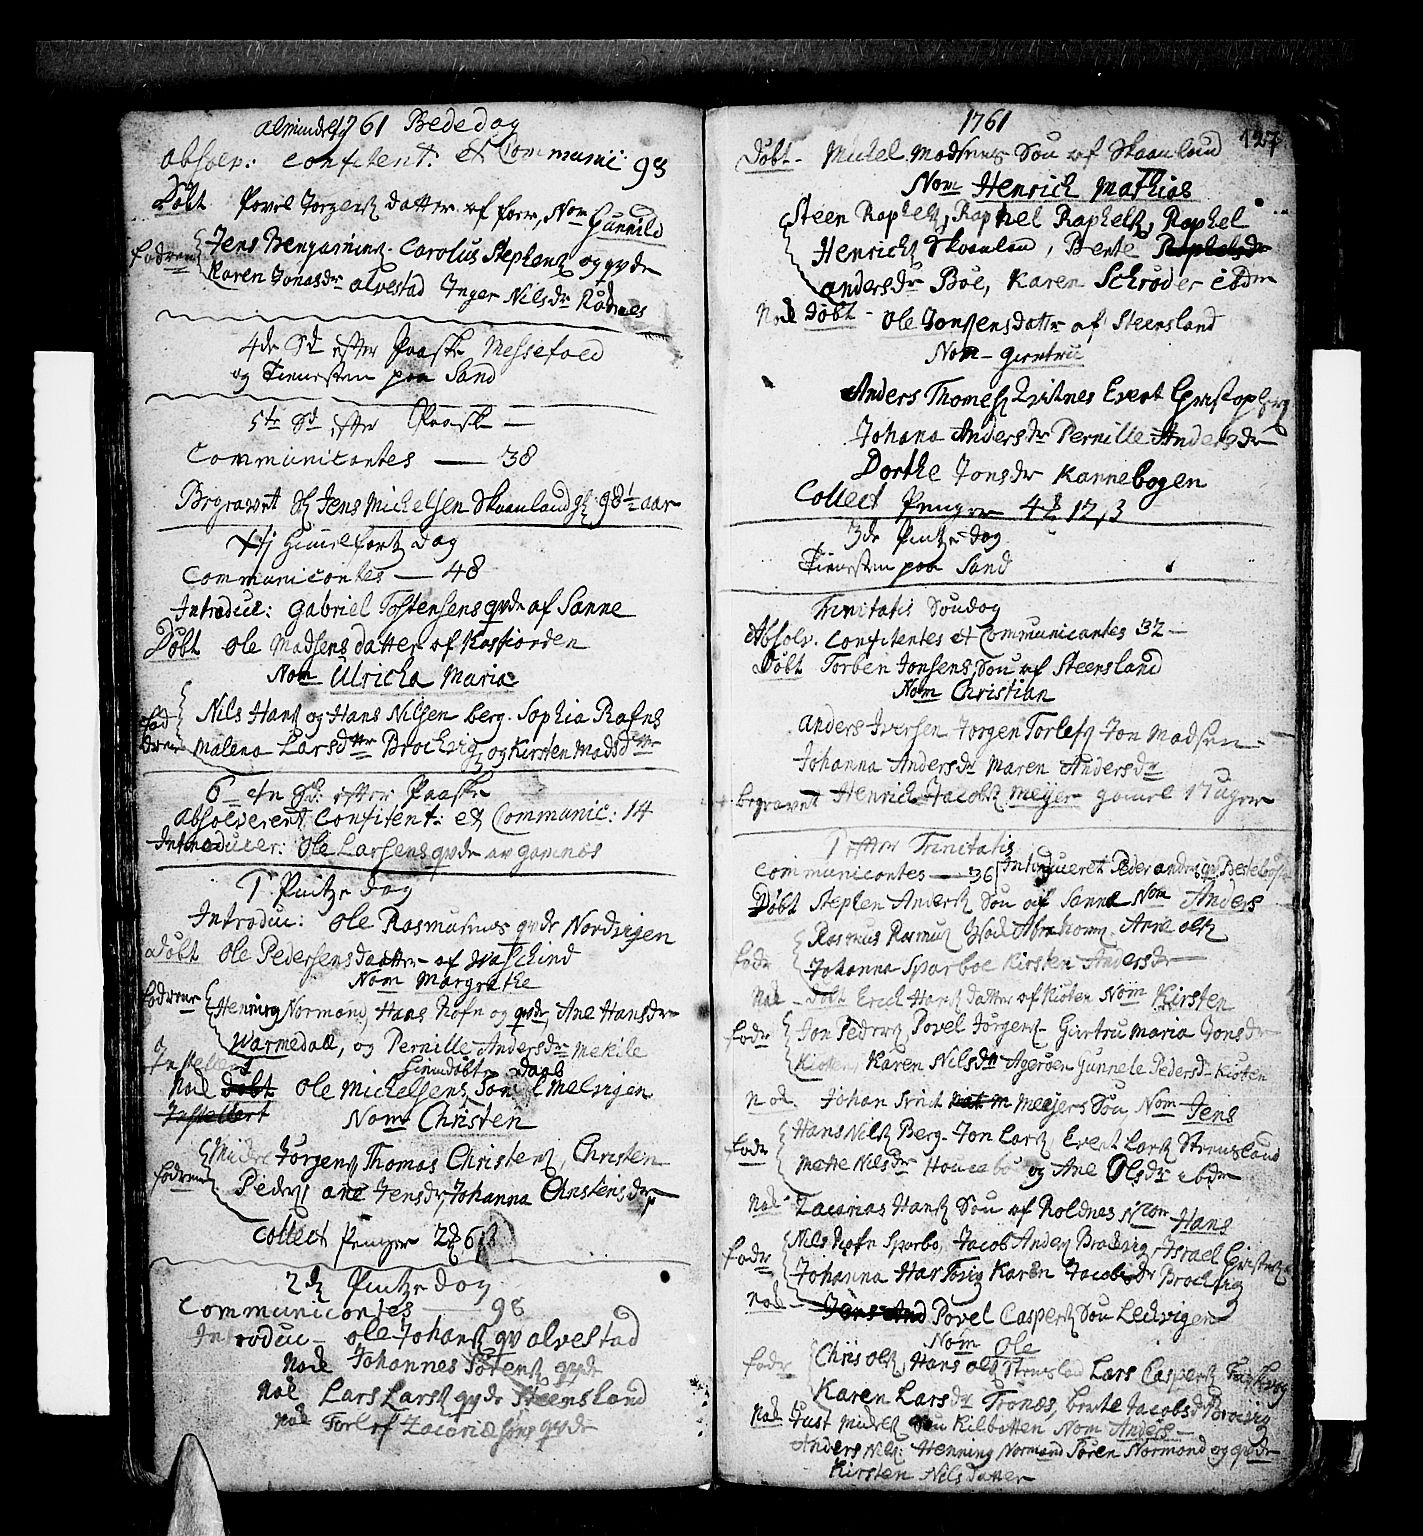 almindelig 1761 Bededag
absolv: confitent: et Communic: 93
Døbt Povel Jørgens datter af foer, Nom Gunnild
fadrene Jens Benjamins. Carolus Stephens og qvde
Karen Jonasdr alvestad Inger Nilsdr Rødnes
4de Sd efter Paaske Messefald
og Tienesten paa Sand
5te Sd efter Paaske
Communicantes — 38
Begravet Sl Jens Michelsen Skaanland gl: 98½ aar
Chj Himelfarts dag
Communicantes — 48
Introduc: Gabriel Tostensens qvde af Sanne
Døbt Ole Madsens datter af Kasfiorden
Nom Ulricha Maria
fad
drene
Nils Hans og Hans Nilsen berg. Sophia Rafns
Malena Larsdtr Brochvig og Kirsten Madsdtr
6 efter Paaske
absolverent Confitent: et Communic: 14
Introducer: Ole Larsens qvde av gamnæs
1 Pintze dag
Introduc: Ole Rasmusens qvde Nordvigen
Døbt Ole Pedersens daatter af
Nom Margrethe
fadrene Henning Normand, Haas Rafn og qvde, Ane Hansdr
Warmedall, og Pernille Andersdr Mekile
Hiemdøbt daab
Nok døbt Ole Michelsens Søn Melvigen
Nom Christen
Jørgens Thomas Christens, Christen
fadrene Peders ane Jensdr, Johanna Christensdr
Collect Penger 2 6
2den Pintze dag
Communicantes 96
Introduc — Ole Johans qv alvestad
Nok Johannes Sørens qvde
Nok Lars Lars qvde Steensland
Nok Torlef Zacariæsøns qvde
1761
127
Døbt — Michel Madsens Søn af Skaanland
Nom Henrich Mathias
Steen Raphels, Raphel Raphels, Raphel
Henrichs Skaanland, Berte Raphelsdr
andersdr Bøe, Karen Schrøder
Nok Døbt — Ole Jonsens datter af Steensland
Nom — giertru
Anders Thomes Evert Christophers
Johana Andersdr Pernille Andersdr
Dorthe Jonsdr Kannebogen
Collect Penger 4 12, 3
3de Pintze dag
Tienesten paa Sand
Trinitatis Søndag
Absolv. Confitentes et Communicantes 32 —
Døbt Torben Jonsens Søn af Steensland
Nom Christian
anders Iversen Jørgen Torlefs Jon Madsen
Johanna Andersdr Maren Andersdr
begravet Henrich Jacobs Meyer gamel 17 uger
1 efter Trinitatis
Communicantes — 36 Introduceret Peder anders qv
Døbt Stephen Anders Søn af Sanne Nom Anders
fadr Rasmus Rasmus Isach Abrahams. Anne Ols
Johanna Sparboe Kirsten Andersdr
Nok — Døbt Erich Hans datter af Kiøten Nom Kirsten
fadr Jon Peders Povel Jørgens Giertru Maria Jonsdr
Kiøten, Karen Nilsdr Ageröen Gunnele Pedersdr Kiøten
nok Johan Meyers Søn Nom Jens
fadr Hans Nils Berg. Jon Lars, Evert Lars Steensland
Mette Nilsdr og Ane Olsdr
Nok Zacarias Hans Søn af Roldnes Nom Hans
fadr Nils Rafn Sparbo, Jacob Anders Brochvig, Israel
Johanna Karen Jacobsdr Brochvig
nok — Jens And Povel Caspers Søn Ledvigen
Nom Ole
fadr Chris Ols, Hans ols Steensland Lars Caspers
Karen Larsdr Tronæs, berte Jacobsd Brocvig
Nok Just Søn Kilbotten Nom Anders —
Anders Nils: Henning Normand Søren Normand og qvde
Kirsten Nilsdatter